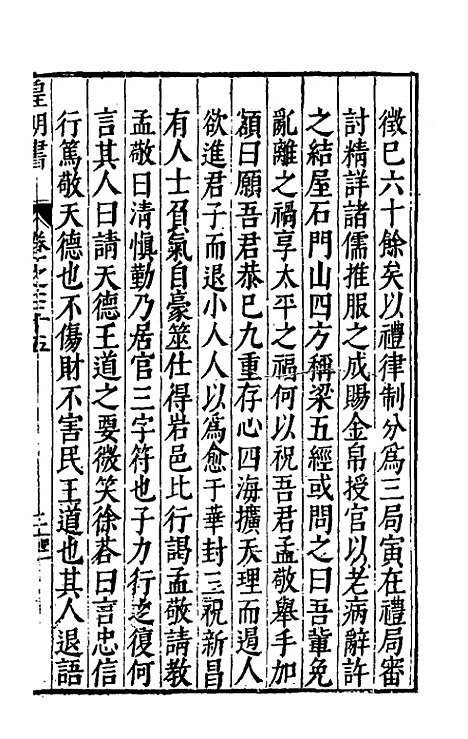 徵已六十餘矣以禮律制分爲三局寅在禮局審
討精詳諸儒推服之成賜金帛授官以老病辭許
之結屋石門山四方稱梁五經或問之曰吾輩免
亂離之禍享太平之福何以祝吾君孟敬舉手加
額曰願吾君恭已九重存心四海擴天理而遏人
欲進君子而退小人人以爲愈于華封三祝新昌
有人士負氣自豪筮仕得岩邑比行謁孟敬請教
孟敬曰清慎勤乃居官三字符也子力行之復何
言其人曰請天德王道之要微笑徐荅曰言忠信
行篤敬天德也不傷財不害民王道也其人退語
皇明書
卷之三十五